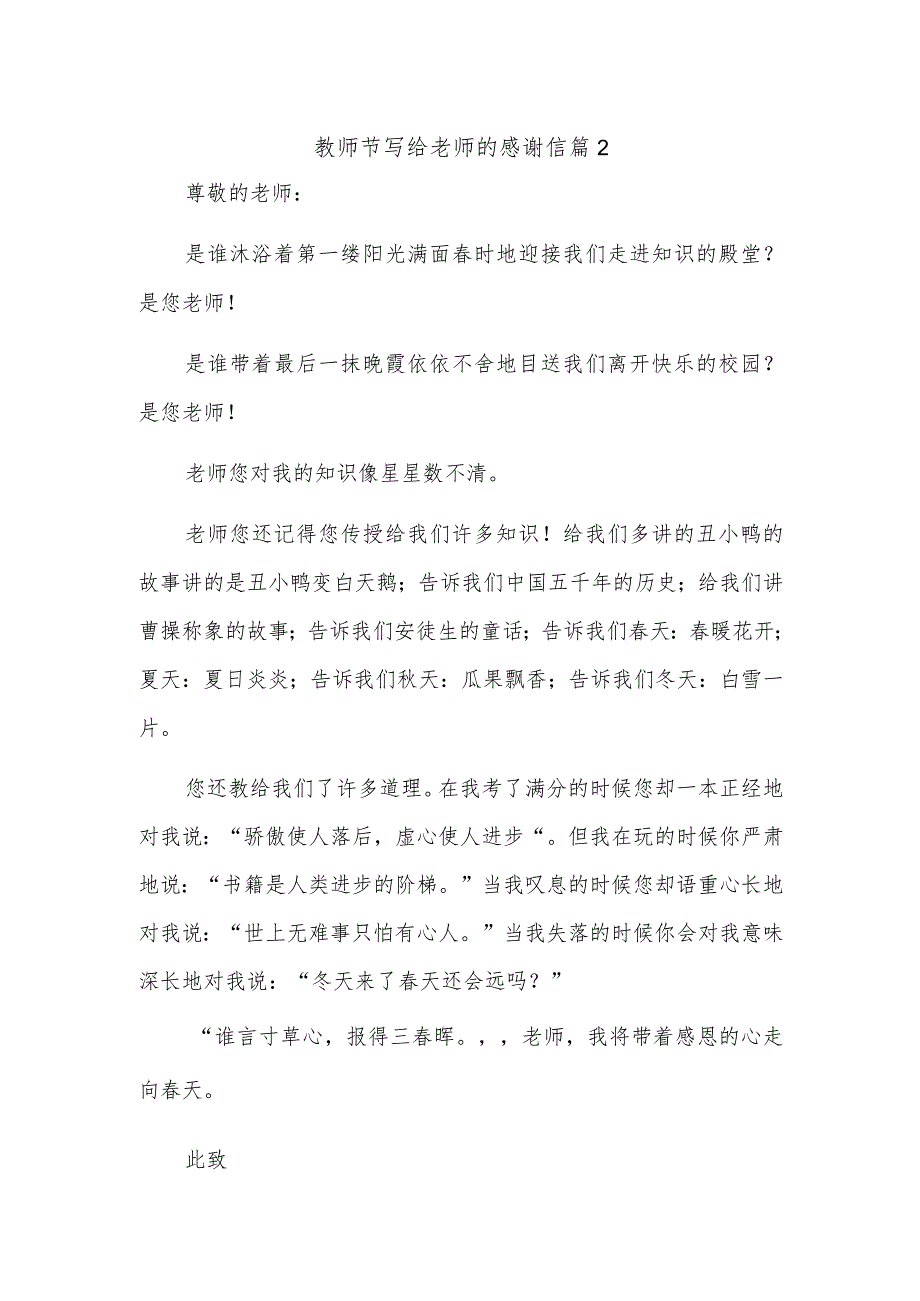 教师节写给老师的感谢信篇2
尊敬的老师：
是谁沐浴着第一缕阳光满面春时地迎接我们走进知识的殿堂？
是您老师！
是谁带着最后一抹晚霞依依不舍地目送我们离开快乐的校园？
是您老师！
老师您对我的知识像星星数不清。
老师您还记得您传授给我们许多知识！给我们多讲的丑小鸭的
故事讲的是丑小鸭变白天鹅；告诉我们中国五千年的历史；给我们讲
曹操称象的故事；告诉我们安徒生的童话；告诉我们春天：春暖花开；
夏天：夏日炎炎；告诉我们秋天：瓜果飘香；告诉我们冬天：白雪一
片。
您还教给我们了许多道理。在我考了满分的时候您却一本正经地
对我说：“骄傲使人落后，虚心使人进步“。但我在玩的时候你严肃
地说：“书籍是人类进步的阶梯。”当我叹息的时候您却语重心长地
对我说：“世上无难事只怕有心人。”当我失落的时候你会对我意味
深长地对我说：“冬天来了春天还会远吗？”
“谁言寸草心，报得三春晖。，，老师，我将带着感恩的心走
向春天。
此致